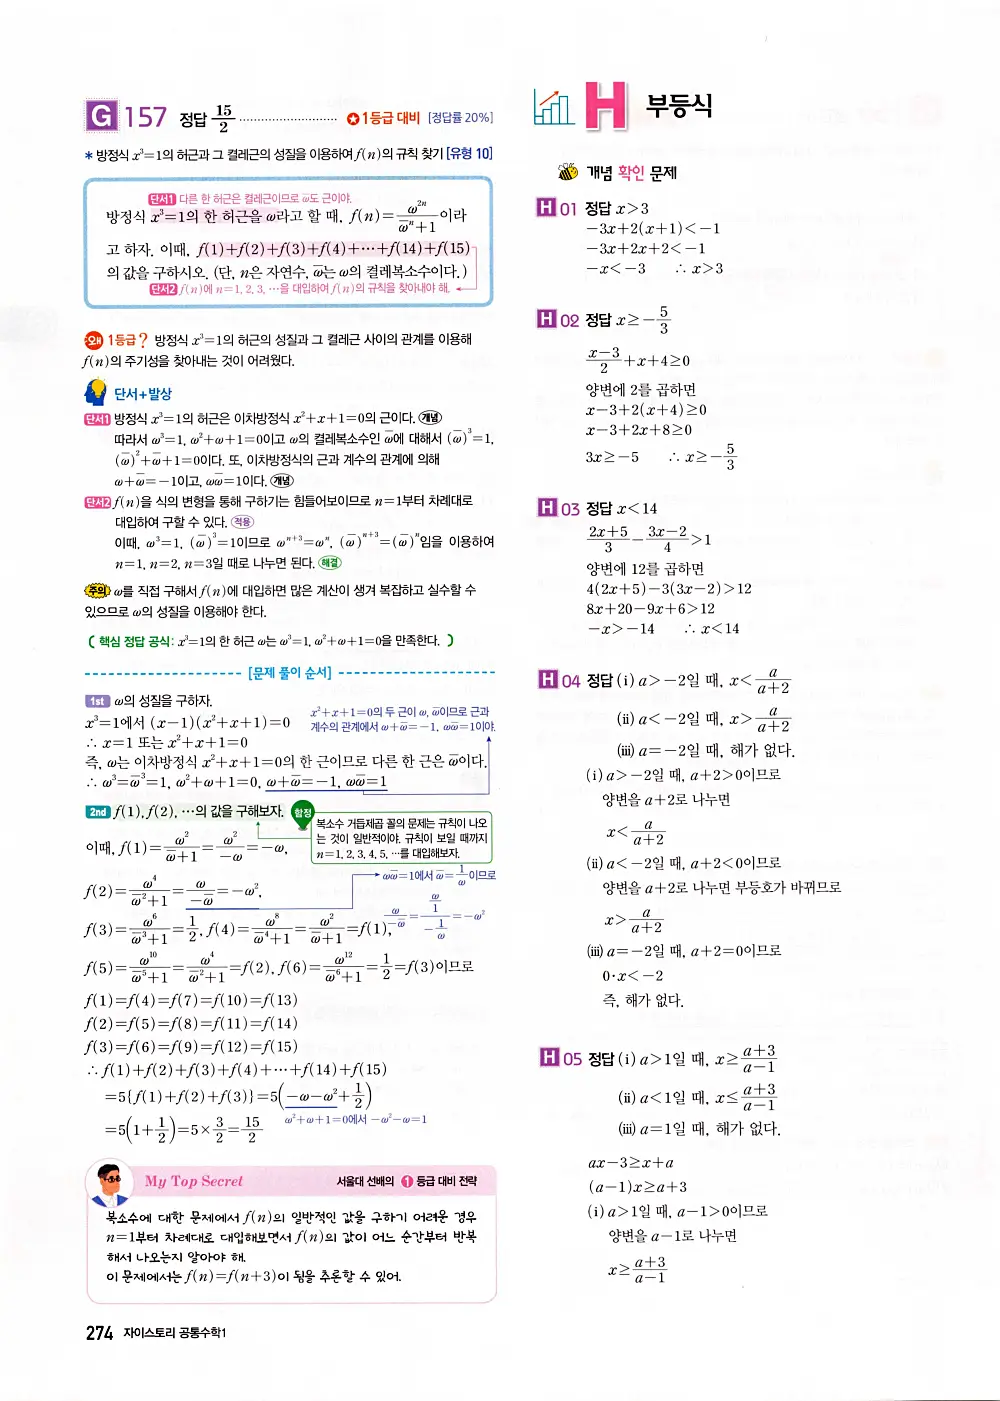 G 157 정답 15/2 ✪1등급 대비 [정답률 20%]
* 방정식 x³=1의 허근과 그 켤레근의 성질을 이용하여 f(n)의 규칙 찾기 [유형 10]
단서1 다른 한 허근은 켤레근이므로 ω̅도 근이야.
방정식 x³=1의 한 허근을 ω라고 할 때, f(n)=ω²ⁿ/(ω̅ⁿ+1)이라
고 하자. 이때, f(1)+f(2)+f(3)+f(4)+⋯+f(14)+f(15)
의 값을 구하시오. (단, n은 자연수, ω̅는 ω의 켤레복소수이다.)
단서2 f(n)에 n=1, 2, 3, ⋯을 대입하여 f(n)의 규칙을 찾아내야 해.
왜 1등급? 방정식 x³=1의 허근의 성질과 그 켤레근 사이의 관계를 이용해
f(n)의 주기성을 찾아내는 것이 어려웠다.
단서+발상
단서1 방정식 x³=1의 허근은 이차방정식 x²+x+1=0의 근이다. 개념
따라서 ω³=1, ω²+ω+1=0이고 ω의 켤레복소수인 ω̅에 대해서 (ω̅)³=1,
(ω̅)²+ω̅+1=0이다. 또, 이차방정식의 근과 계수의 관계에 의해
ω+ω̅=-1이고, ωω̅=1이다. 개념
단서2 f(n)을 식의 변형을 통해 구하기는 힘들어보이므로 n=1부터 차례대로
대입하여 구할 수 있다. 적용
이때, ω³=1, (ω̅)³=1이므로 ωⁿ⁺³=ωⁿ, (ω̅)ⁿ⁺³=(ω̅)ⁿ임을 이용하여
n=1, n=2, n=3일 때로 나누면 된다. 해결
주의 ω를 직접 구해서 f(n)에 대입하면 많은 계산이 생겨 복잡하고 실수할 수
있으므로 ω의 성질을 이용해야 한다.
( 핵심 정답 공식: x³=1의 한 허근 ω는 ω³=1, ω²+ω+1=0을 만족한다. )
[문제 풀이 순서]
1st ω의 성질을 구하자.
x³=1에서 (x-1)(x²+x+1)=0
x²+x+1=0의 두 근이 ω, ω̅이므로 근과
계수의 관계에서 ω+ω̅=-1, ωω̅=1이야.
∴ x=1 또는 x²+x+1=0
즉, ω는 이차방정식 x²+x+1=0의 한 근이므로 다른 한 근은 ω̅이다.
∴ ω³=ω̅³=1, ω²+ω+1=0, ω+ω̅=-1, ωω̅=1
2nd f(1), f(2), ⋯의 값을 구해보자. 함정
복소수 거듭제곱 꼴의 문제는 규칙이 나오
는 것이 일반적이야. 규칙이 보일 때까지
n=1, 2, 3, 4, 5, ⋯를 대입해보자.
이때, f(1)=ω²/(ω̅+1)=ω²/(-ω)=-ω,
ωω̅=1에서 ω̅=1/ω이므로
f(2)=ω⁴/(ω̅²+1)=ω/(-ω̅)=-ω²,
ω/(-ω̅)=(ω/1)/(-1/ω)=-ω²
f(3)=ω⁶/(ω̅³+1)=1/2, f(4)=ω⁸/(ω̅⁴+1)=ω²/(ω̅+1)=f(1),
f(5)=ω¹⁰/(ω̅⁵+1)=ω⁴/(ω̅²+1)=f(2), f(6)=ω¹²/(ω̅⁶+1)=1/2=f(3)이므로
f(1)=f(4)=f(7)=f(10)=f(13)
f(2)=f(5)=f(8)=f(11)=f(14)
f(3)=f(6)=f(9)=f(12)=f(15)
∴ f(1)+f(2)+f(3)+f(4)+⋯+f(14)+f(15)
=5{f(1)+f(2)+f(3)}=5(-ω-ω²+1/2)
ω²+ω+1=0에서 -ω²-ω=1
=5(1+1/2)=5×3/2=15/2
My Top Secret 서울대 선배의 1등급 대비 전략
복소수에 대한 문제에서 f(n)의 일반적인 값을 구하기 어려운 경우
n=1부터 차례대로 대입해보면서 f(n)의 값이 어느 순간부터 반복
해서 나오는지 알아야 해.
이 문제에서는 f(n)=f(n+3)이 됨을 추론할 수 있어.
274 자이스토리 공통수학1
H 부등식
개념 확인 문제
H 01 정답 x>3
-3x+2(x+1)<-1
-3x+2x+2<-1
-x<-3 ∴ x>3
H 02 정답 x≥-5/3
(x-3)/2+x+4≥0
양변에 2를 곱하면
x-3+2(x+4)≥0
x-3+2x+8≥0
3x≥-5 ∴ x≥-5/3
H 03 정답 x<14
(2x+5)/3-(3x-2)/4>1
양변에 12를 곱하면
4(2x+5)-3(3x-2)>12
8x+20-9x+6>12
-x>-14 ∴ x<14
H 04 정답 (i) a>-2일 때, x<a/(a+2)
(ii) a<-2일 때, x>a/(a+2)
(iii) a=-2일 때, 해가 없다.
(i) a>-2일 때, a+2>0이므로
양변을 a+2로 나누면
x<a/(a+2)
(ii) a<-2일 때, a+2<0이므로
양변을 a+2로 나누면 부등호가 바뀌므로
x>a/(a+2)
(iii) a=-2일 때, a+2=0이므로
0·x<-2
즉, 해가 없다.
H 05 정답 (i) a>1일 때, x≥(a+3)/(a-1)
(ii) a<1일 때, x≤(a+3)/(a-1)
(iii) a=1일 때, 해가 없다.
ax-3≥x+a
(a-1)x≥a+3
(i) a>1일 때, a-1>0이므로
양변을 a-1로 나누면
x≥(a+3)/(a-1)